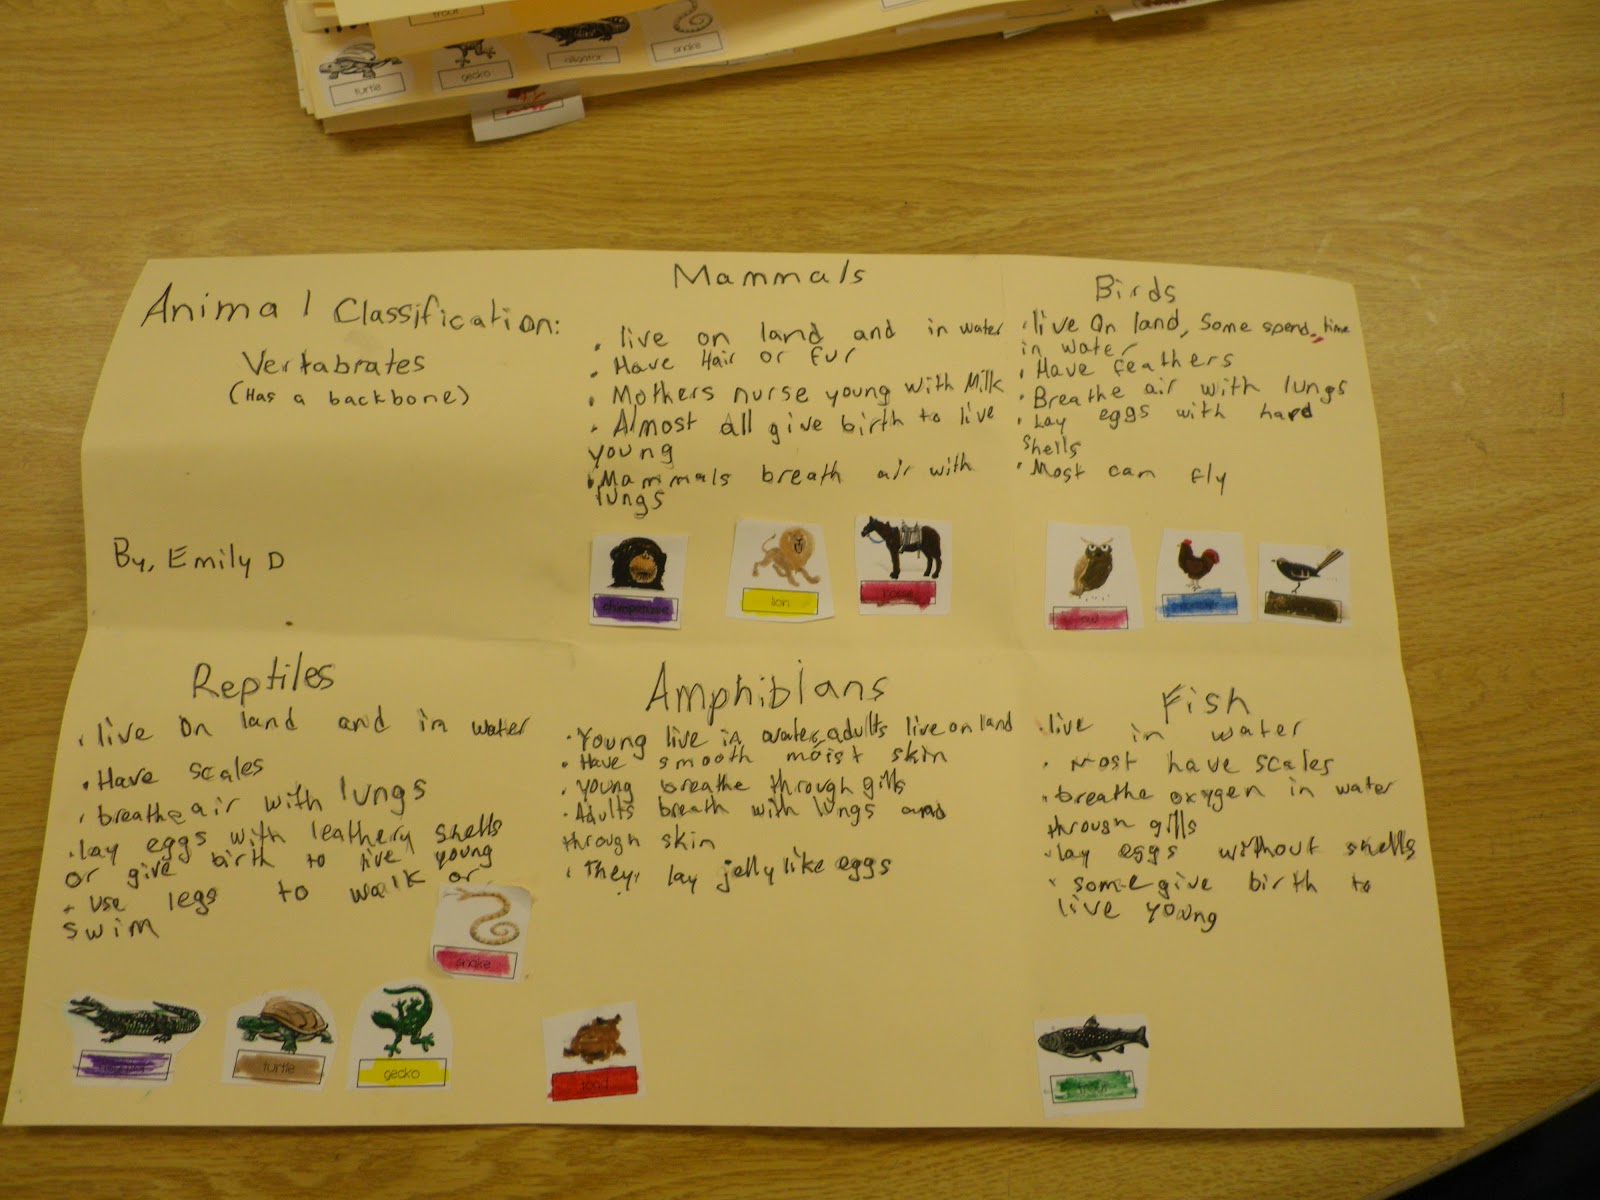 trout
turtle
gecko
alligator
snake
Animal Classification:
Vertabrates
(Has a backbone)
By, Emily D
Mammals
• live on land and in water
• Have Hair or fur
• Mothers nurse young with Milk
• Almost all give birth to live
young
• Mammals breath air with
lungs
chimpanzee
lion
horse
Birds
• live On land, Some spend, time
in water
• Have feathers
• Breathe air with lungs
• Lay eggs with hard
shells
• Most can fly
owl
Reptiles
• live On land and in water
• Have scales
• breathe air with lungs
• lay eggs with leathery shells
or give birth to live young
• use legs to walk or
swim
snake
alligator
turtle
gecko
Amphibians
• Young live in water, adults live on land
• Have smooth moist skin
• Young breathe through gills
• Adults breath with lungs and
through skin
• They, lay jelly like eggs
toad
Fish
• live in water
• Most have scales
• breathe oxygen in water
through gills
• lay eggs without shells
• some give birth to
live young
trout